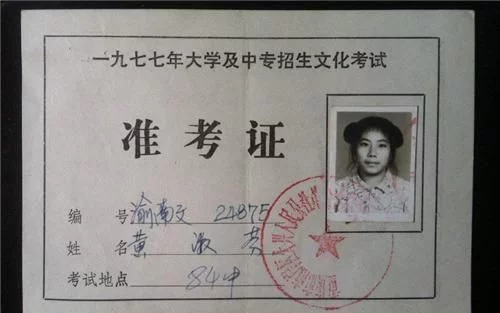 一九七七年大学及中专招生文化考试
准考证
编 号 渝南文 24875
姓 名 黄淑芬
考试地点 84中